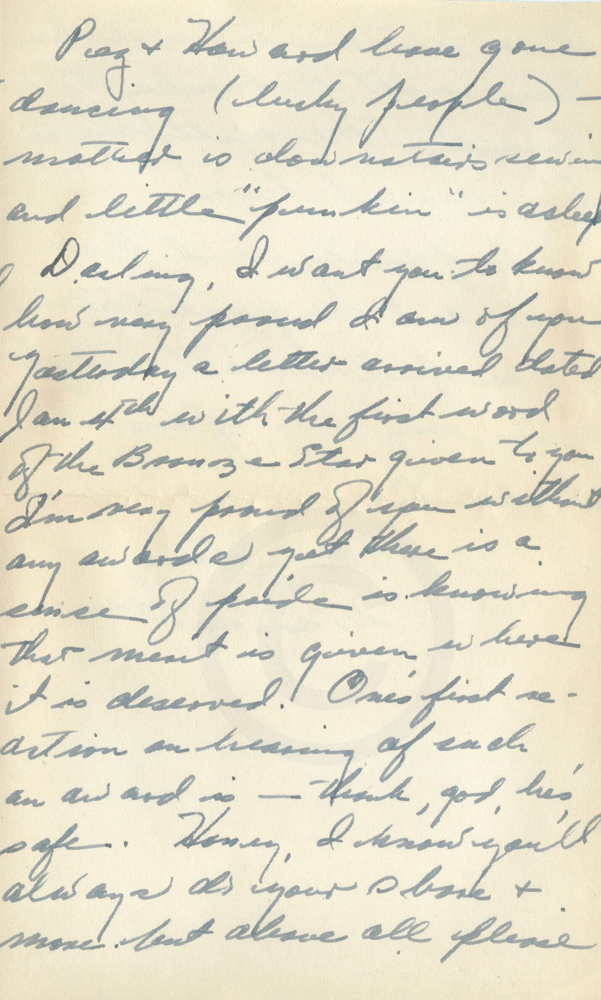 Peg & Howard have gone
dancing (lucky people) -
mother is downstairs sewin
and little "punkin" is asleep
Darling, I want you to know
how very proud I am of you
Yesterday a letter arrived dated
Jan 4th with the first word
of the Bronze Star given to you
I'm very proud of you without
any awards yet there is a
sense of pride is knowing
that merit is given where
it is deserved. One's first re-
action on hearing of such
an award is — thank, god, he's,
safe. Honey, I know you'll
always do your share +
more but above all please